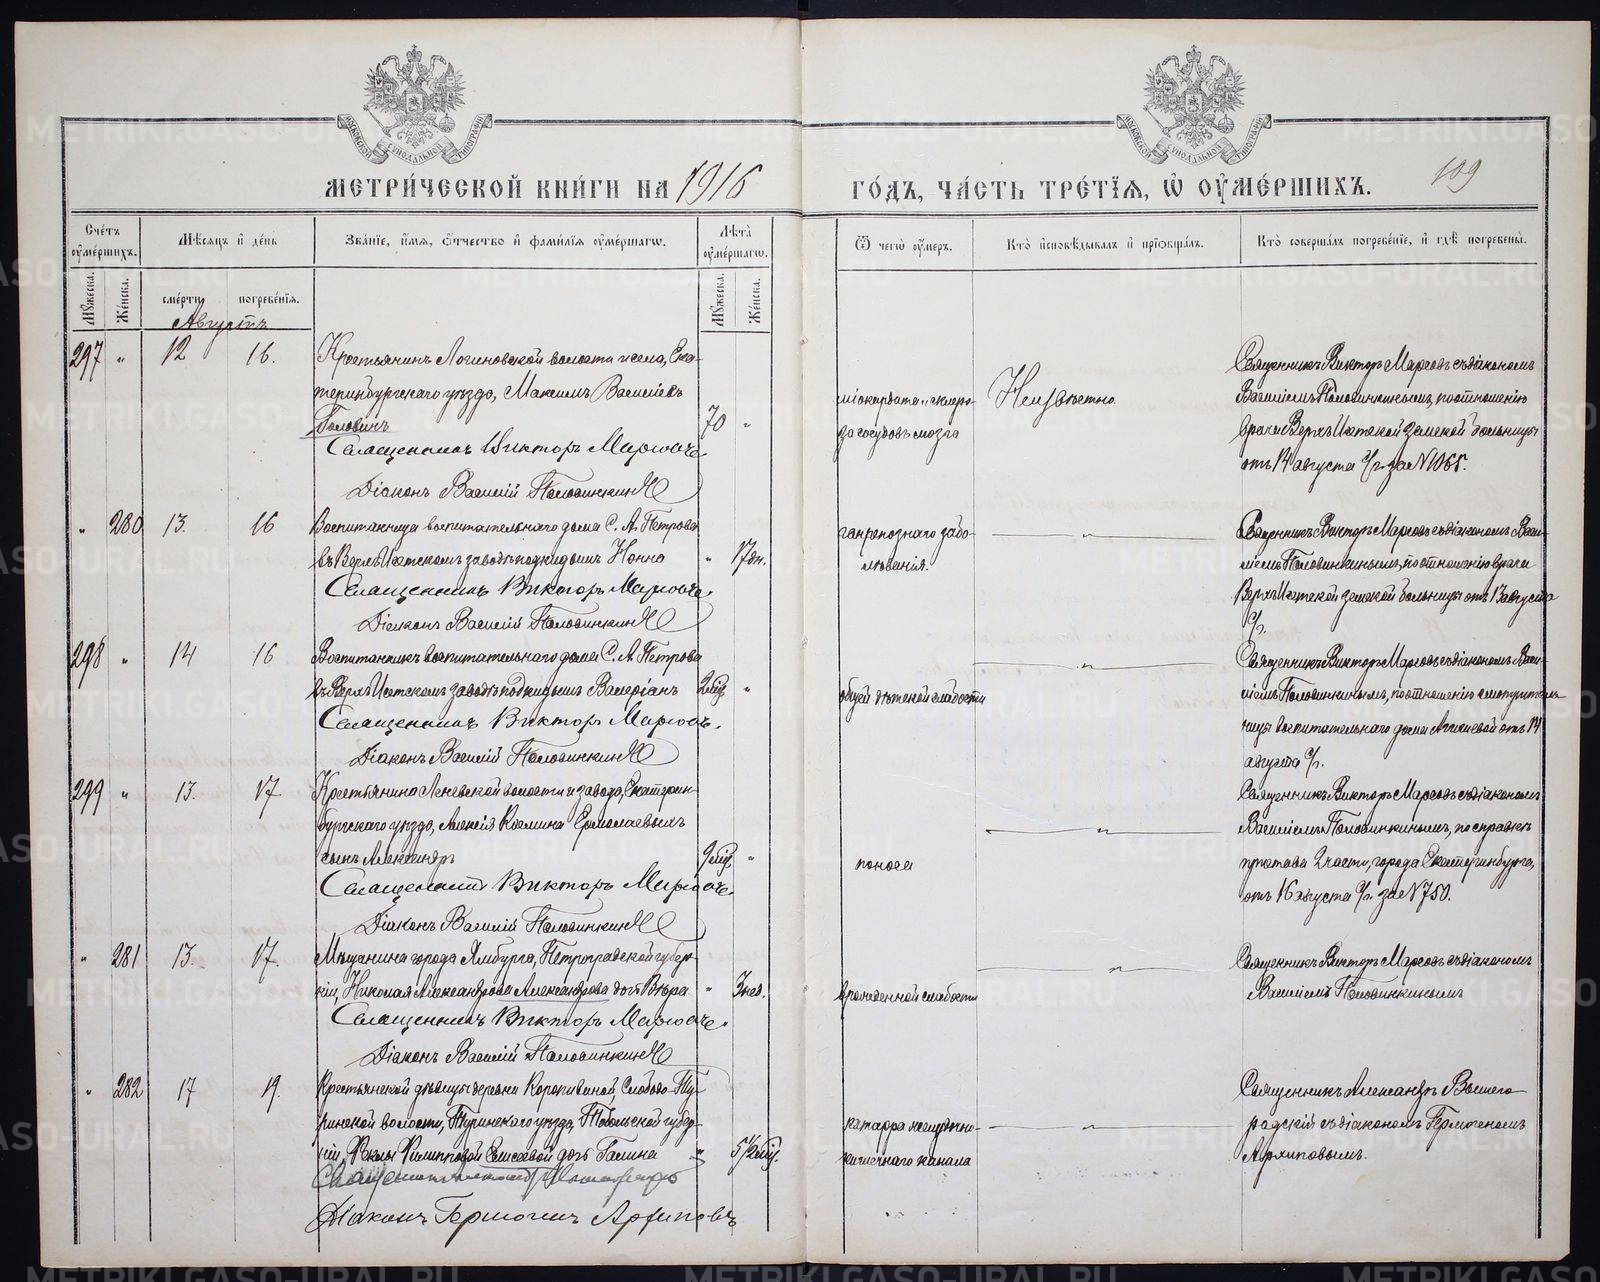 МЕТРИ́ЧЕСКОЙ КНИ́ГИ НА 1916
ГО́ДЪ, ЧА́СТЬ ТРЕ́ТЇѦ, Ѡ҆ ОУ҆МЕ́РШИХЪ.
109
Сче́тъ оу҆ме́ршихъ.
Мѣ́сяцъ и҆ де́нь
Зва́нїе, и҆́мѧ, ѻ҆́тчество и҆ фами́лїѧ оу҆ме́ршагѡ.
Лѣ́та̀ оу҆ме́ршагѡ.
Ѿ чегѡ̀ оу҆́меръ.
Кто̀ и҆сповѣ́дывалъ и҆ прїѡбща́лъ.
Кто̀ соверша́лъ погребе́нїе, и҆ гдѣ̀ погребены̀.
Мꙋ́жеска.
Же́нска.
сме́рти
погребе́нїѧ.
Мꙋ́жеска.
Же́нска.
Августъ
297 " 12 16. Крестьянинъ Логиновской волости и села, Ека-
теринбургскаго уѣзда, Максимъ Васильевъ
Головинъ 70 "
Священникъ Викторъ Марсовъ.
Діаконъ Василій Половинкинъ
міокардита и склеро-
за сосудовъ мозга
Неизвѣстно.
Священникъ Викторъ Марсовъ съ діакономъ
Василіемъ Половинкинымъ, по отношенію
врача Верхъ Исетской земской больницы
отъ 14 августа с/г. за № 1065.
" 280 13. 16 Воспитанница воспитательнаго дома С. А. Петрова
въ Верхъ Исетскомъ заводѣ подкидышъ Нонна " 17 дн.
Священникъ Викторъ Марсовъ.
Діаконъ Василій Половинкинъ
гангренознаго забо-
лѣванія.
"
Священникъ Викторъ Марсовъ съ діакономъ Васи-
ліемъ Половинкинымъ, по отношенію врача
Верхъ Исетской земской больницы отъ 13 августа
с/г.
298 " 14 16 Воспитанникъ воспитательнаго дома С. А. Петрова
въ Верхъ Исетскомъ заводѣ подкидышъ Валеріанъ 2 мѣс. "
Священникъ Викторъ Марсовъ.
Діаконъ Василій Половинкинъ
общей дѣтской слабости
"
Священникъ Викторъ Марсовъ съ діакономъ Васи-
ліемъ Половинкинымъ, по отношенію смотритель-
ницы воспитательнаго дома отъ 14
августа с/г.
299 " 13. 17 Крестьянина Леневской волости и завода, Екатерин-
бургскаго уѣзда, Алексія Козмина Ермолаевыхъ
сынъ Александръ 9 мѣс. "
Священникъ Викторъ Марсовъ.
Діаконъ Василій Половинкинъ
поноса
"
Священникъ Викторъ Марсовъ съ діакономъ
Василіемъ Половинкинымъ, по справкѣ
пристава 2 части, города Екатеринбурга,
отъ 16 августа с/г. за № 750.
" 281 13. 17. Мѣщанина города Ямбурга, Петроградской губер-
ніи, Николая Александрова Александрова дочь Вѣра " 3 нед.
Священникъ Викторъ Марсовъ.
Діаконъ Василій Половинкинъ
врожденной слабости
"
Священникъ Викторъ Марсовъ съ діакономъ
Василіемъ Половинкинымъ
" 282 17 19. Крестьянской дѣвицы деревни Слободо-Ту-
ринской волости, Туринскаго уѣзда, Тобольской губер-
ніи, Ѳеклы Филипповой Елисеевой дочь Галина " 5 1/2 мѣс.
Діаконъ Гермогенъ Архиповъ
катарра желудочно-
кишечнаго канала
"
Священникъ Александръ Вышего-
родскій съ діакономъ Гермогеномъ
Архиповымъ.
METRIKI.GASO-URAL.RU